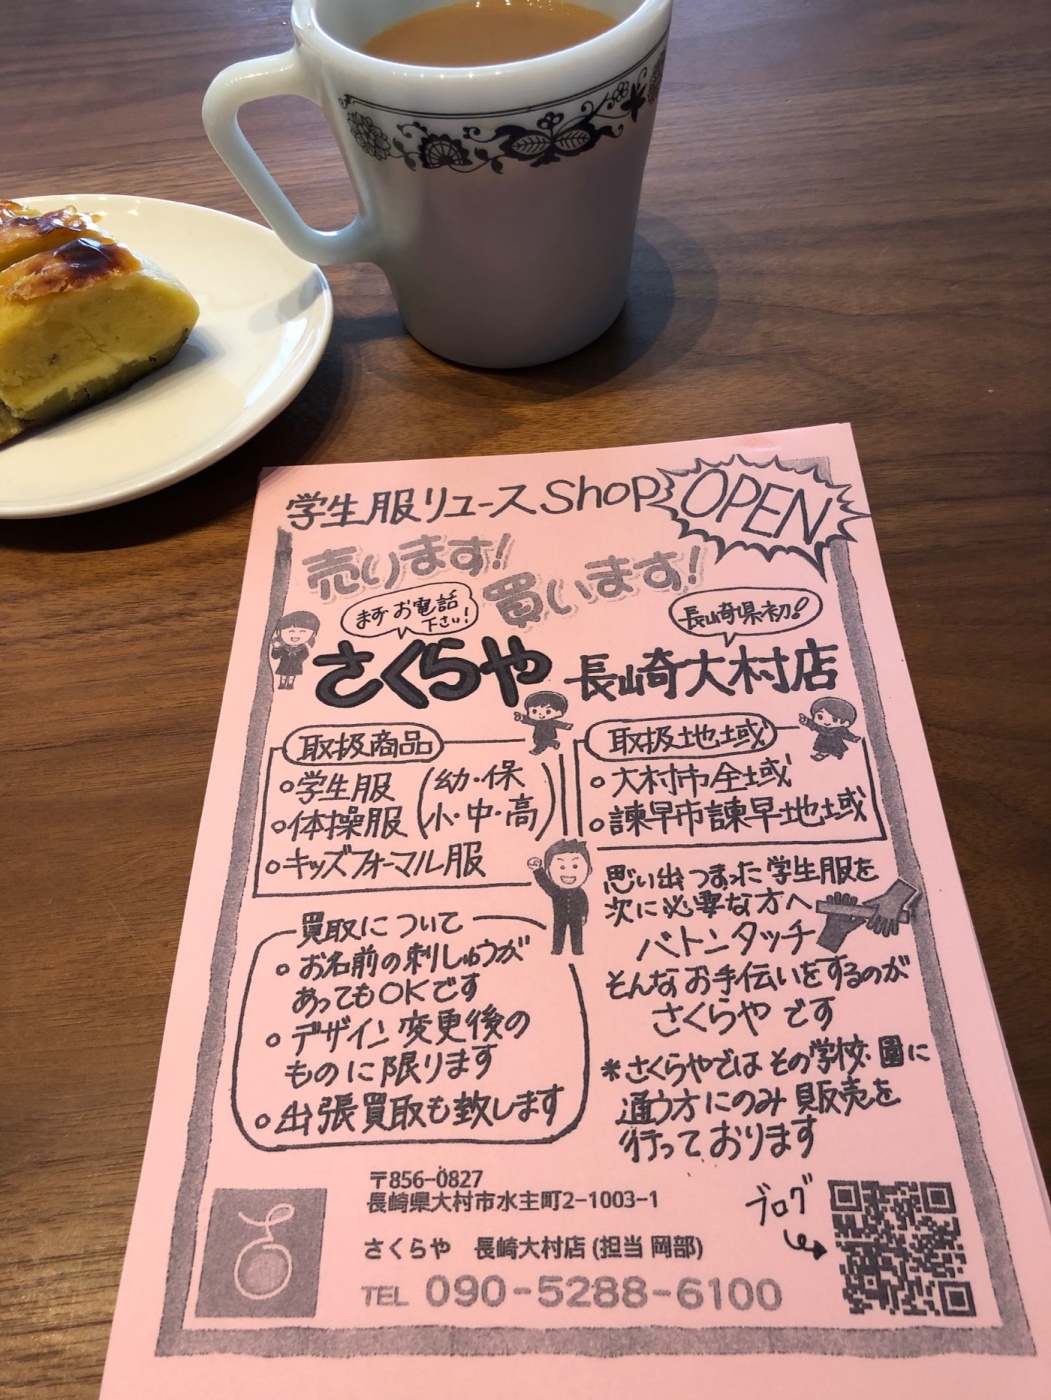 学生服リユースShop
OPEN
売ります!
買います!
まずお電話
下さい!
長崎県初!
さくらや 長崎大村店
取扱商品
○学生服
○体操服
(幼・保
小・中・高)
○キッズフォーマル服
取扱地域
○大村市全域
○諫早市諫早地域
買取について
○お名前の刺しゅうが
あってもOKです
○デザイン変更後の
ものに限ります
○出張買取も致します
思い出つまった学生服を
次に必要な方へ
バトンタッチ
そんなお手伝いをするのが
さくらやです
*さくらやではその学校・園に
通う方にのみ販売を
行っております
〒856-0827
長崎県大村市水主町2-1003-1
さくらや 長崎大村店 (担当 岡部)
TEL 090-5288-6100
ブログ